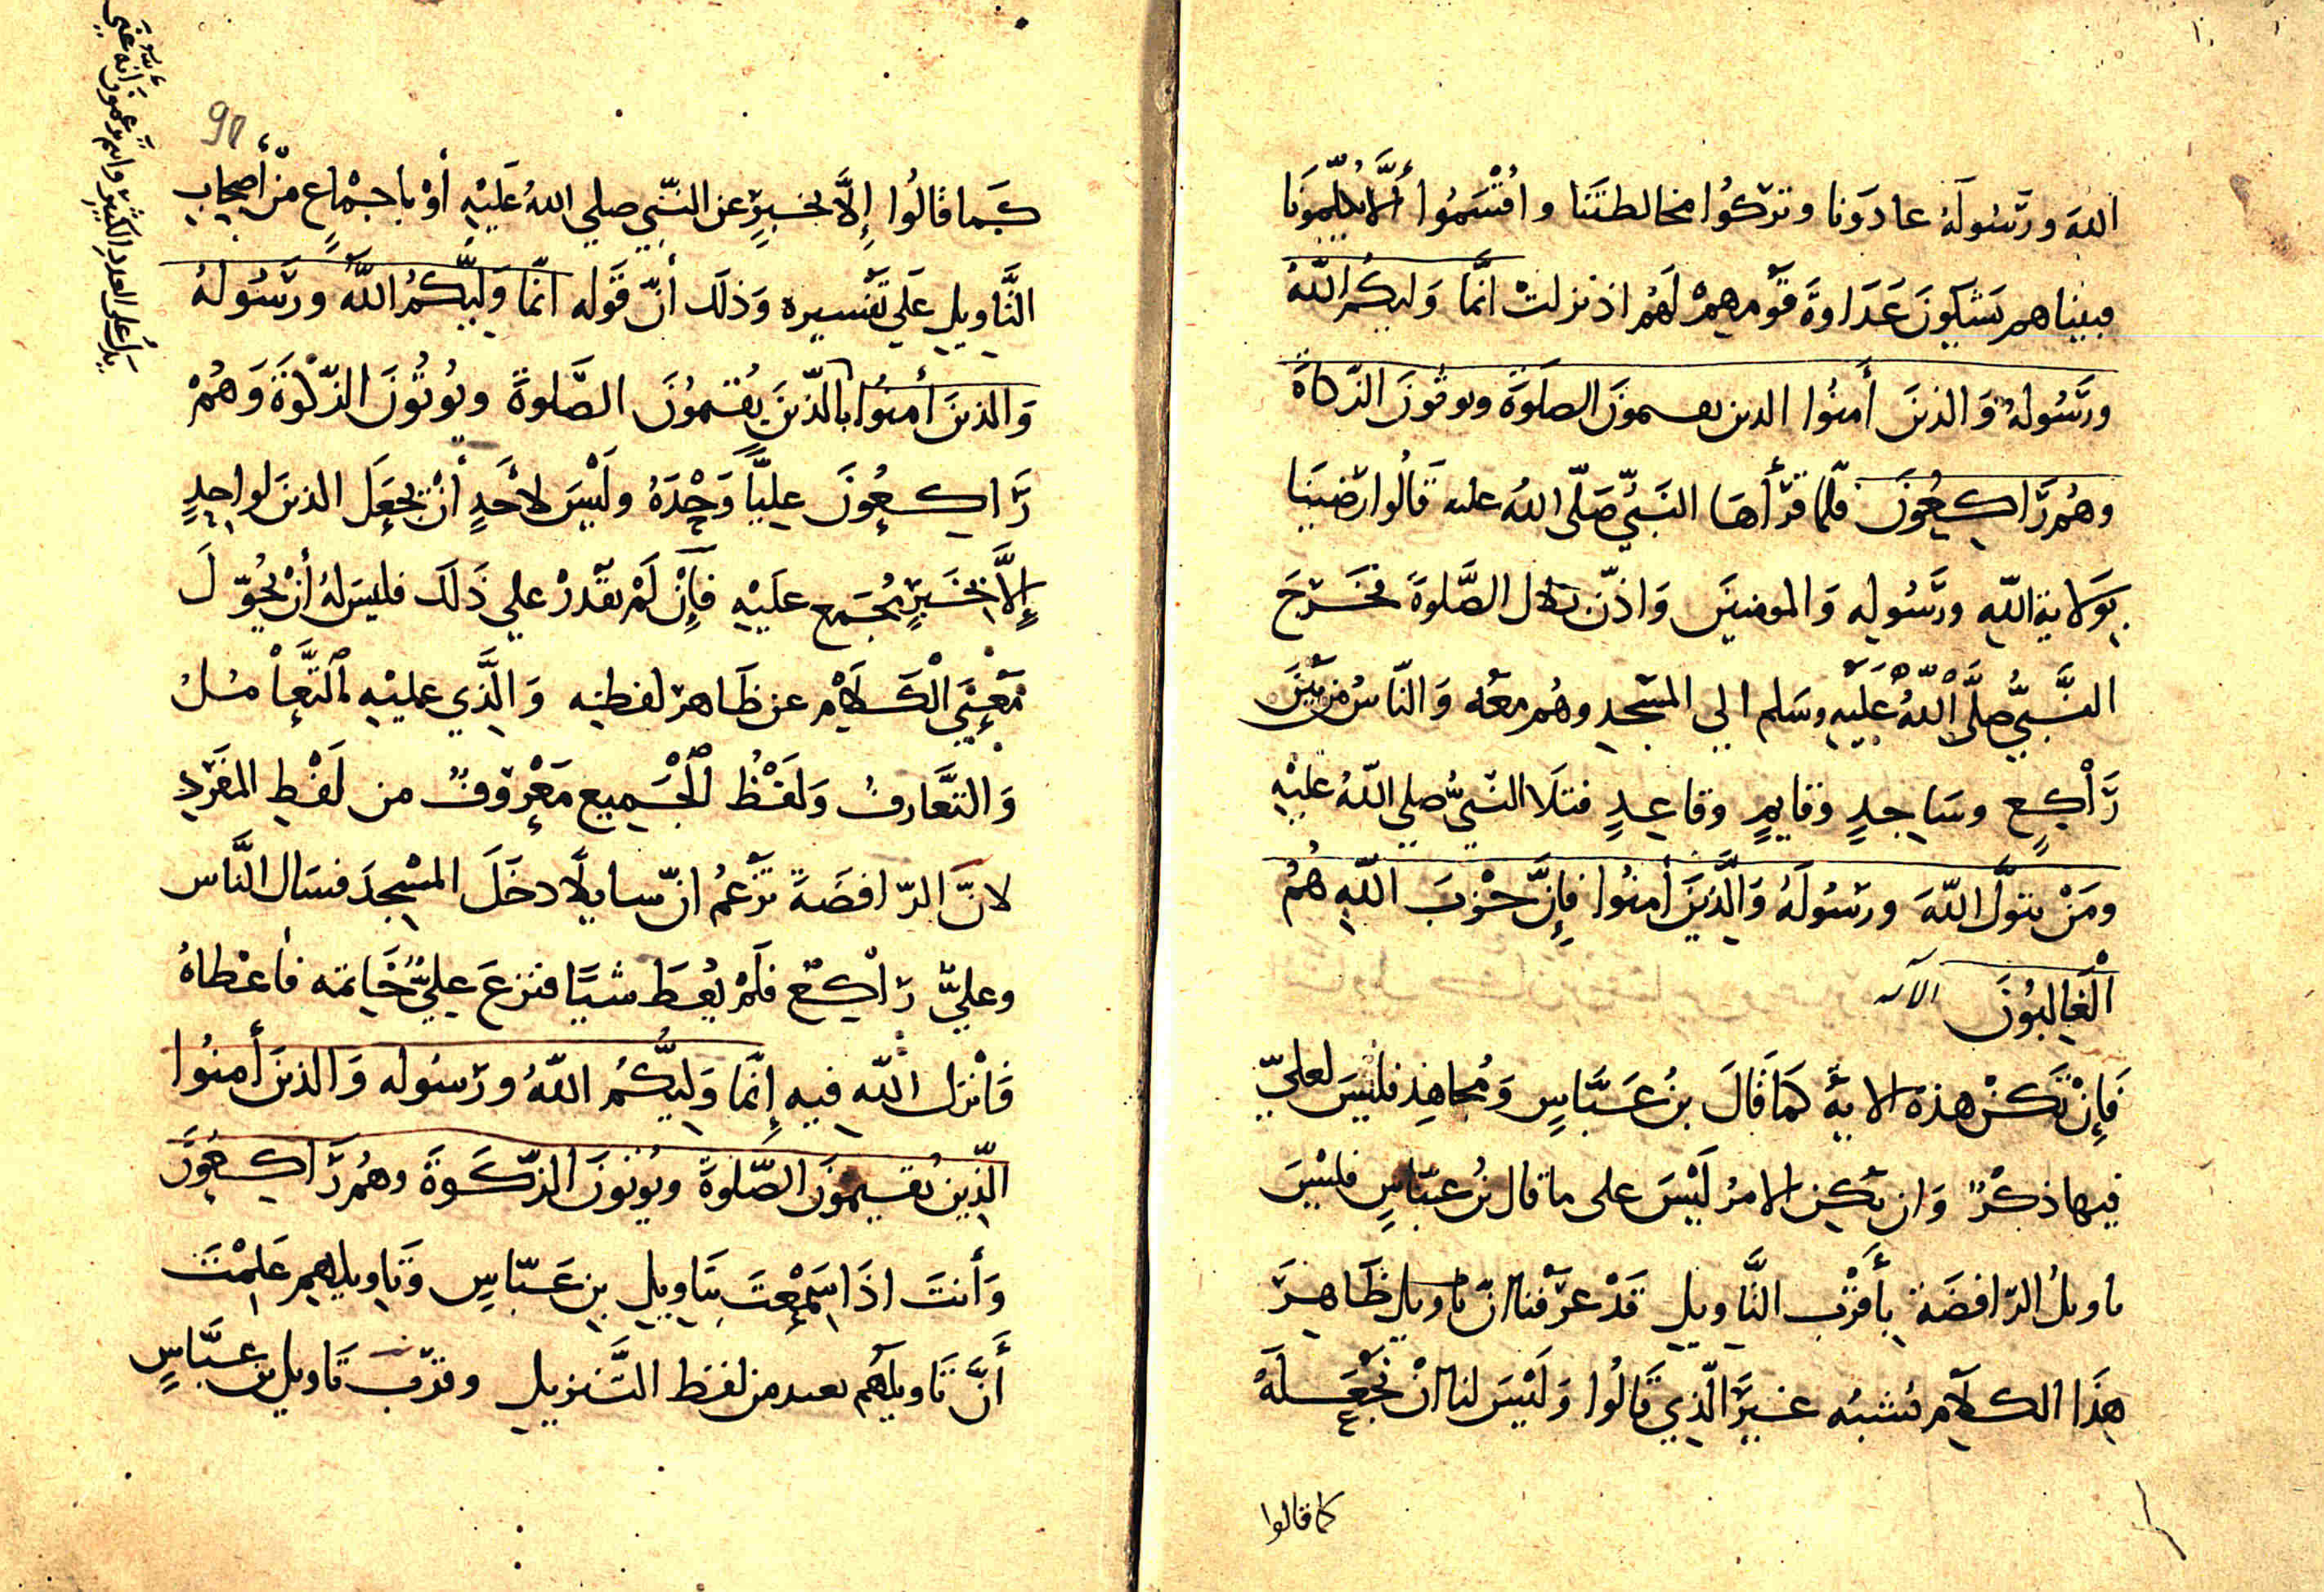 الله ورَسُولَهُ عادَونا وتركُوا مخالطتَنَا واقْتسَمُوا أَلَّا يُكلِّمونَا
فبينا هم يَشكُونَ عَدَاوةَ قَوْمهِمْ لَهُم اذ نزلتْ انَّمَا وَليكُمُ اللّهُ
ورَسُولهُ وَالذينَ أَمنُوا الدىن ىعىمونَ الصلَوةَ ويوتُونَ الزّكاةَ
وهُم رَاكِعُونَ فلمّا قرَأَهَا النَبيّ صَلّى اللهُ علىه قَالُوا رَضينَا
بِوَلايةِ اللّهِ ورَسُولِهِ وَالمومنينَ وَاذّن بلال الصَّلوةَ فخَرَجَ
النَّبيُّ صلَّى اللَّهُ عَلَيْهِ وسَلم الي المسْجدِ وهُم معَهُ وَالنّاسُ من بَيْنَ
رَاْكِعٍ وسَاجدٍ وقايمٍ وقاعِدٍ فتلَا النّبيُّ صلي اللّهُ عليْهِ
ومَنْ يتولَّ اللّهَ ورسُولَهُ وَالَّذينَ أمنُوا فإِنَّ حزْبَ اللّهِ هُمُ
الْغَالِبُونَ الآىه
فَإِنْ تَكُنْ هذه الايةُ كمَا قَالَ بنُ عَبَّاسٍ وَمُجاهِد فليْسَ لعليّ
فيها ذكْرٌ وَان يَكُن الامرُ لَيْسَ على ما قال بنُ عبّاسٍ فليْسَ
تاويلُ الرّافضَة بِأَقرَب التَّاويلِ قَدْ عرَفْنا انّ تاويل ظَاهِرَ
هذَا الكلَام يُشبهُ غيرَ الّذِي قَالُوا وَلَيْسَ لنا انْ نَجْعَلَهُ
كما قالوا
كَمَا قَالُوا إِلَّا بخبرٍ عن النّبيّ صلي اللهُ عَلَيْهِ أوْ باجْمَاعٍ منْ أصحابِ
التَّاويلِ عَلَي تَفْسيرهِ وَذلَك أنّ قَوْله انّمَا وَليُّكُمُ اللّهُ ورَسُولهُ
وَالذينَ أمنُوا بالّذينَ يُقيمُونَ الصَّلوةَ ويُوتُونَ الزّكْوةَ وَهُمْ
رَاكعُونَ عليّاً وَحْدَهُ ولَيْسَ لأحَدٍ أنْ يجْعَلَ الذينَ لواحِدٍ
إلَّا بخَبَرٍ مُجمَع علَيْهِ فَإِنْ لَمْ يَقْدرْ علي ذَلَك فليسَ لهُ أنْ يُحُوّلَ
مَعْنَي الْكَلَامِ عن ظَاهر لفظهِ وَالَّذي عليْهِ التَّعَاْمُلُ
وَالتَّعَارفُ وَلَفْظُ الْجَمِيعِ مَعْروفٌ من لَفْظِ المفرَدِ
لانَّ الرّافضَةَ تَزْعُمُ انّ سايلًا دخَلَ المسْجدَ فسَال النَّاس
وعليّ رَاْكعٌ فلَمْ يُعْطَ شيًا فنزعَ عليٌّ خَاتمَه فاعْطاهُ
فَانْزل اللّه فيهِ إِنَّمَا وَليُّكُمُ اللّهُ ورَسُوله وَالذينَ أمنُوا
الّذِين يُقيمُونَ الصّلوةَ ويُوتُونَ الزّكَوةَ وهُم رَاكِعُونَ
وَأنتَ اذَا سَمعْتَ بتَاوِيلِ بنِ عَبّاسٍ وَتَاويلهِم عَلِمْتَ
أَنَّ تَاويلَهُم بعيد من لفظ التَّنزيلِ وقرْبَ تَاويل بن عبَّاسٍ